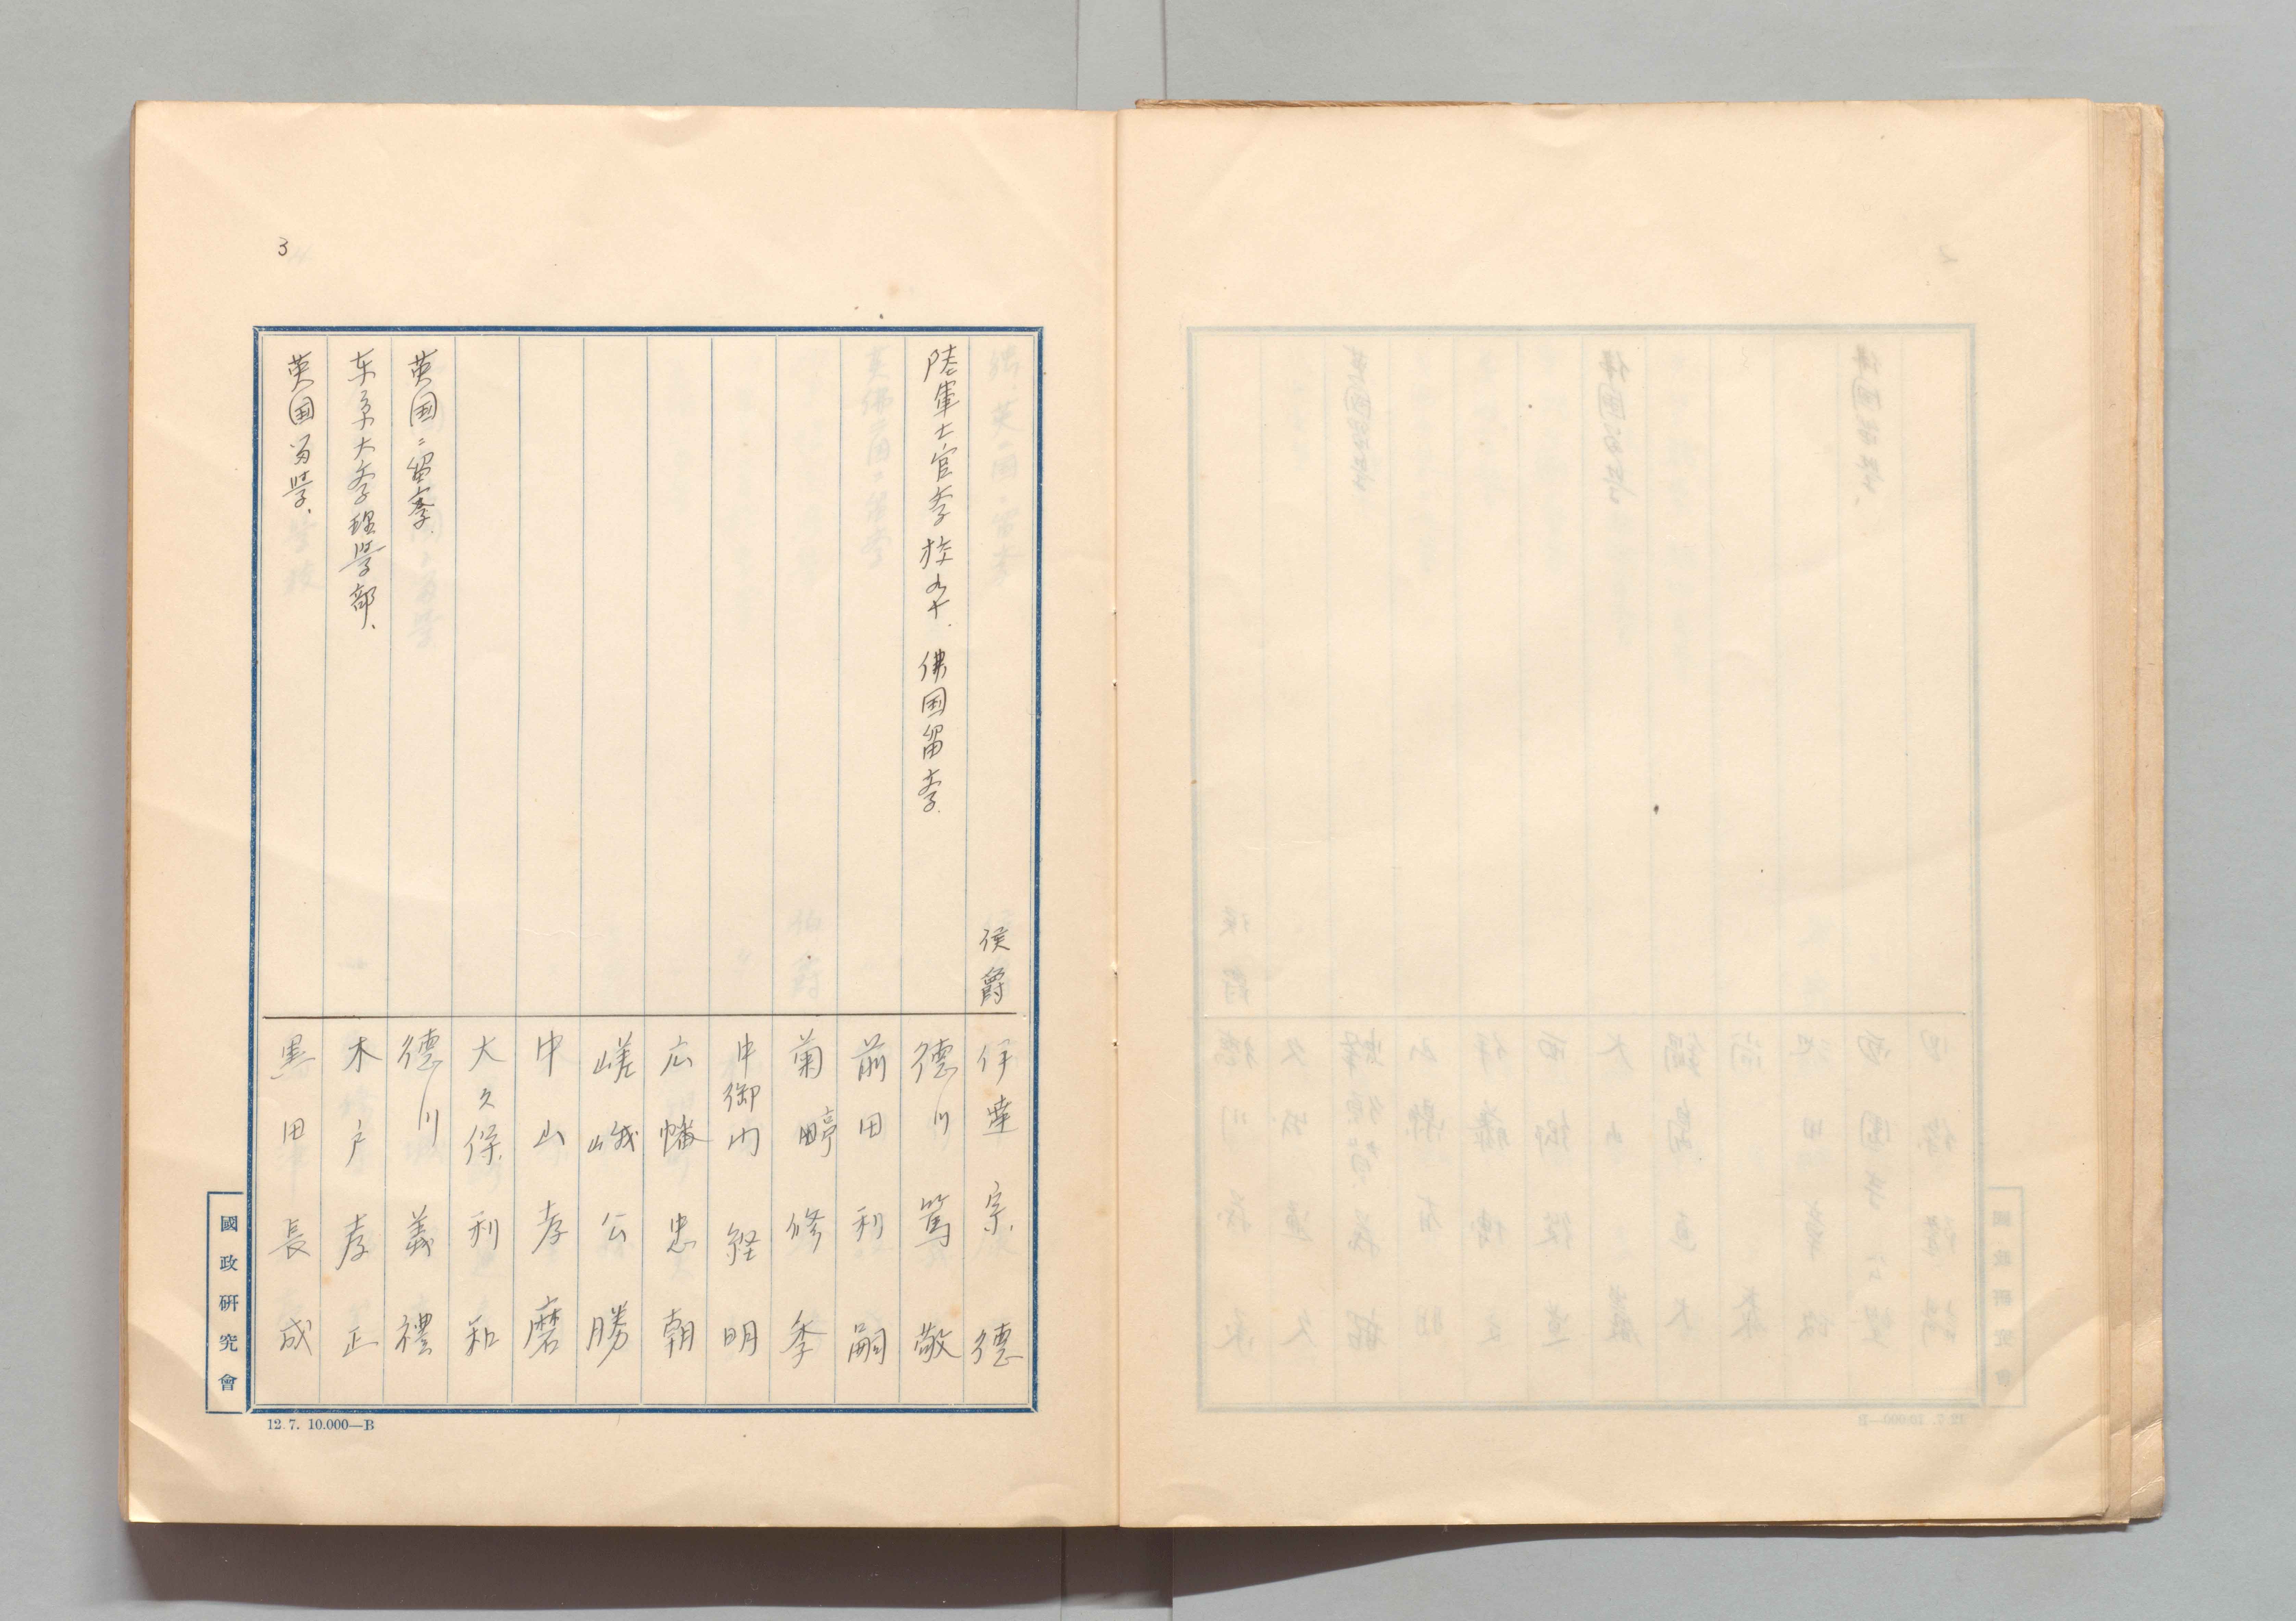 3
侯爵 伊達宗德
陸軍士官学校卆. 佛国留学. 德川篤敬
前田利嗣
菊亭修季
中御門経明
広幡忠朝
嵯峨公勝
中山孝麿
大久保利和
英国ニ留学. 德川義禮
东京大学理学部. 木戸孝正
英国留学. 黒田長成
國政研究會
12.7. 10.000—B